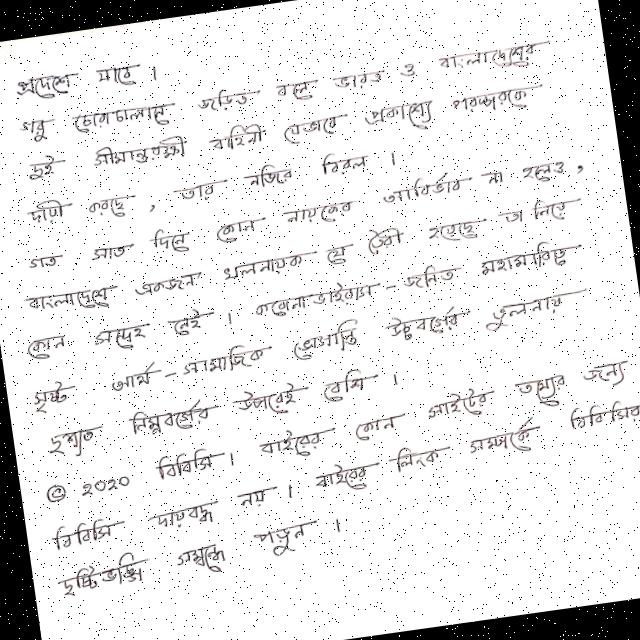 প্রদেশে মারে ।
গরু চোরাচালানে জড়িত বলে ভারত ও বাংলাদেশের
দুই সীমান্তরক্ষী বাহিনী যেভাবে প্রকাশ্যে পরস্পরকে
দায়ী করছে , তার নজির বিরল ।
গত সাত দিনে কোন নায়কের আবির্ভাব না হলেও ,
বাংলাদেশে একজন খলনায়ক যে তৈরী হয়েছে তা নিয়ে
কোন সন্দেহ নেই । করোনাভাইরাস - জনিত মহামারিতে
সৃষ্ট আর্থ - সামাজিক ভোগান্তি উচ্চবর্গের তুলনায়
দৃশ্যত নিম্নবর্গের উপরেই বেশি ।
© ২০২০ বিবিসি । বাইরের কোন সাইটের তথ্যের জন্য
বিবিসি দায়বদ্ধ নয় । বাইরের লিংক সম্পর্কে বিবিসির
দৃষ্টিভঙ্গি সম্বন্ধে পড়ুন ।